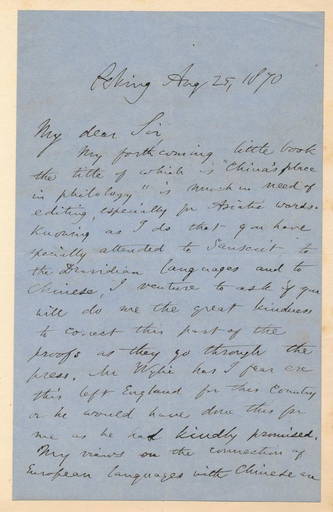 Peking Aug 25, 1870
My dear Sir
My forthcoming little book
the title of which is "China's place
in philology" is much in need of
editing, especially for Asiatic words.
Knowing as I do that you have
specially attended to Sanscrit to
the Dravidian languages and to
Chinese, I venture to ask if you
will do me the great kindness
to correct this part of the
proofs as they go through the
press. Mr Wylie has I fear ere
this left England for this country
or he would have done this for
me as he had kindly promised.
My views on the connection of
European languages with Chinese are